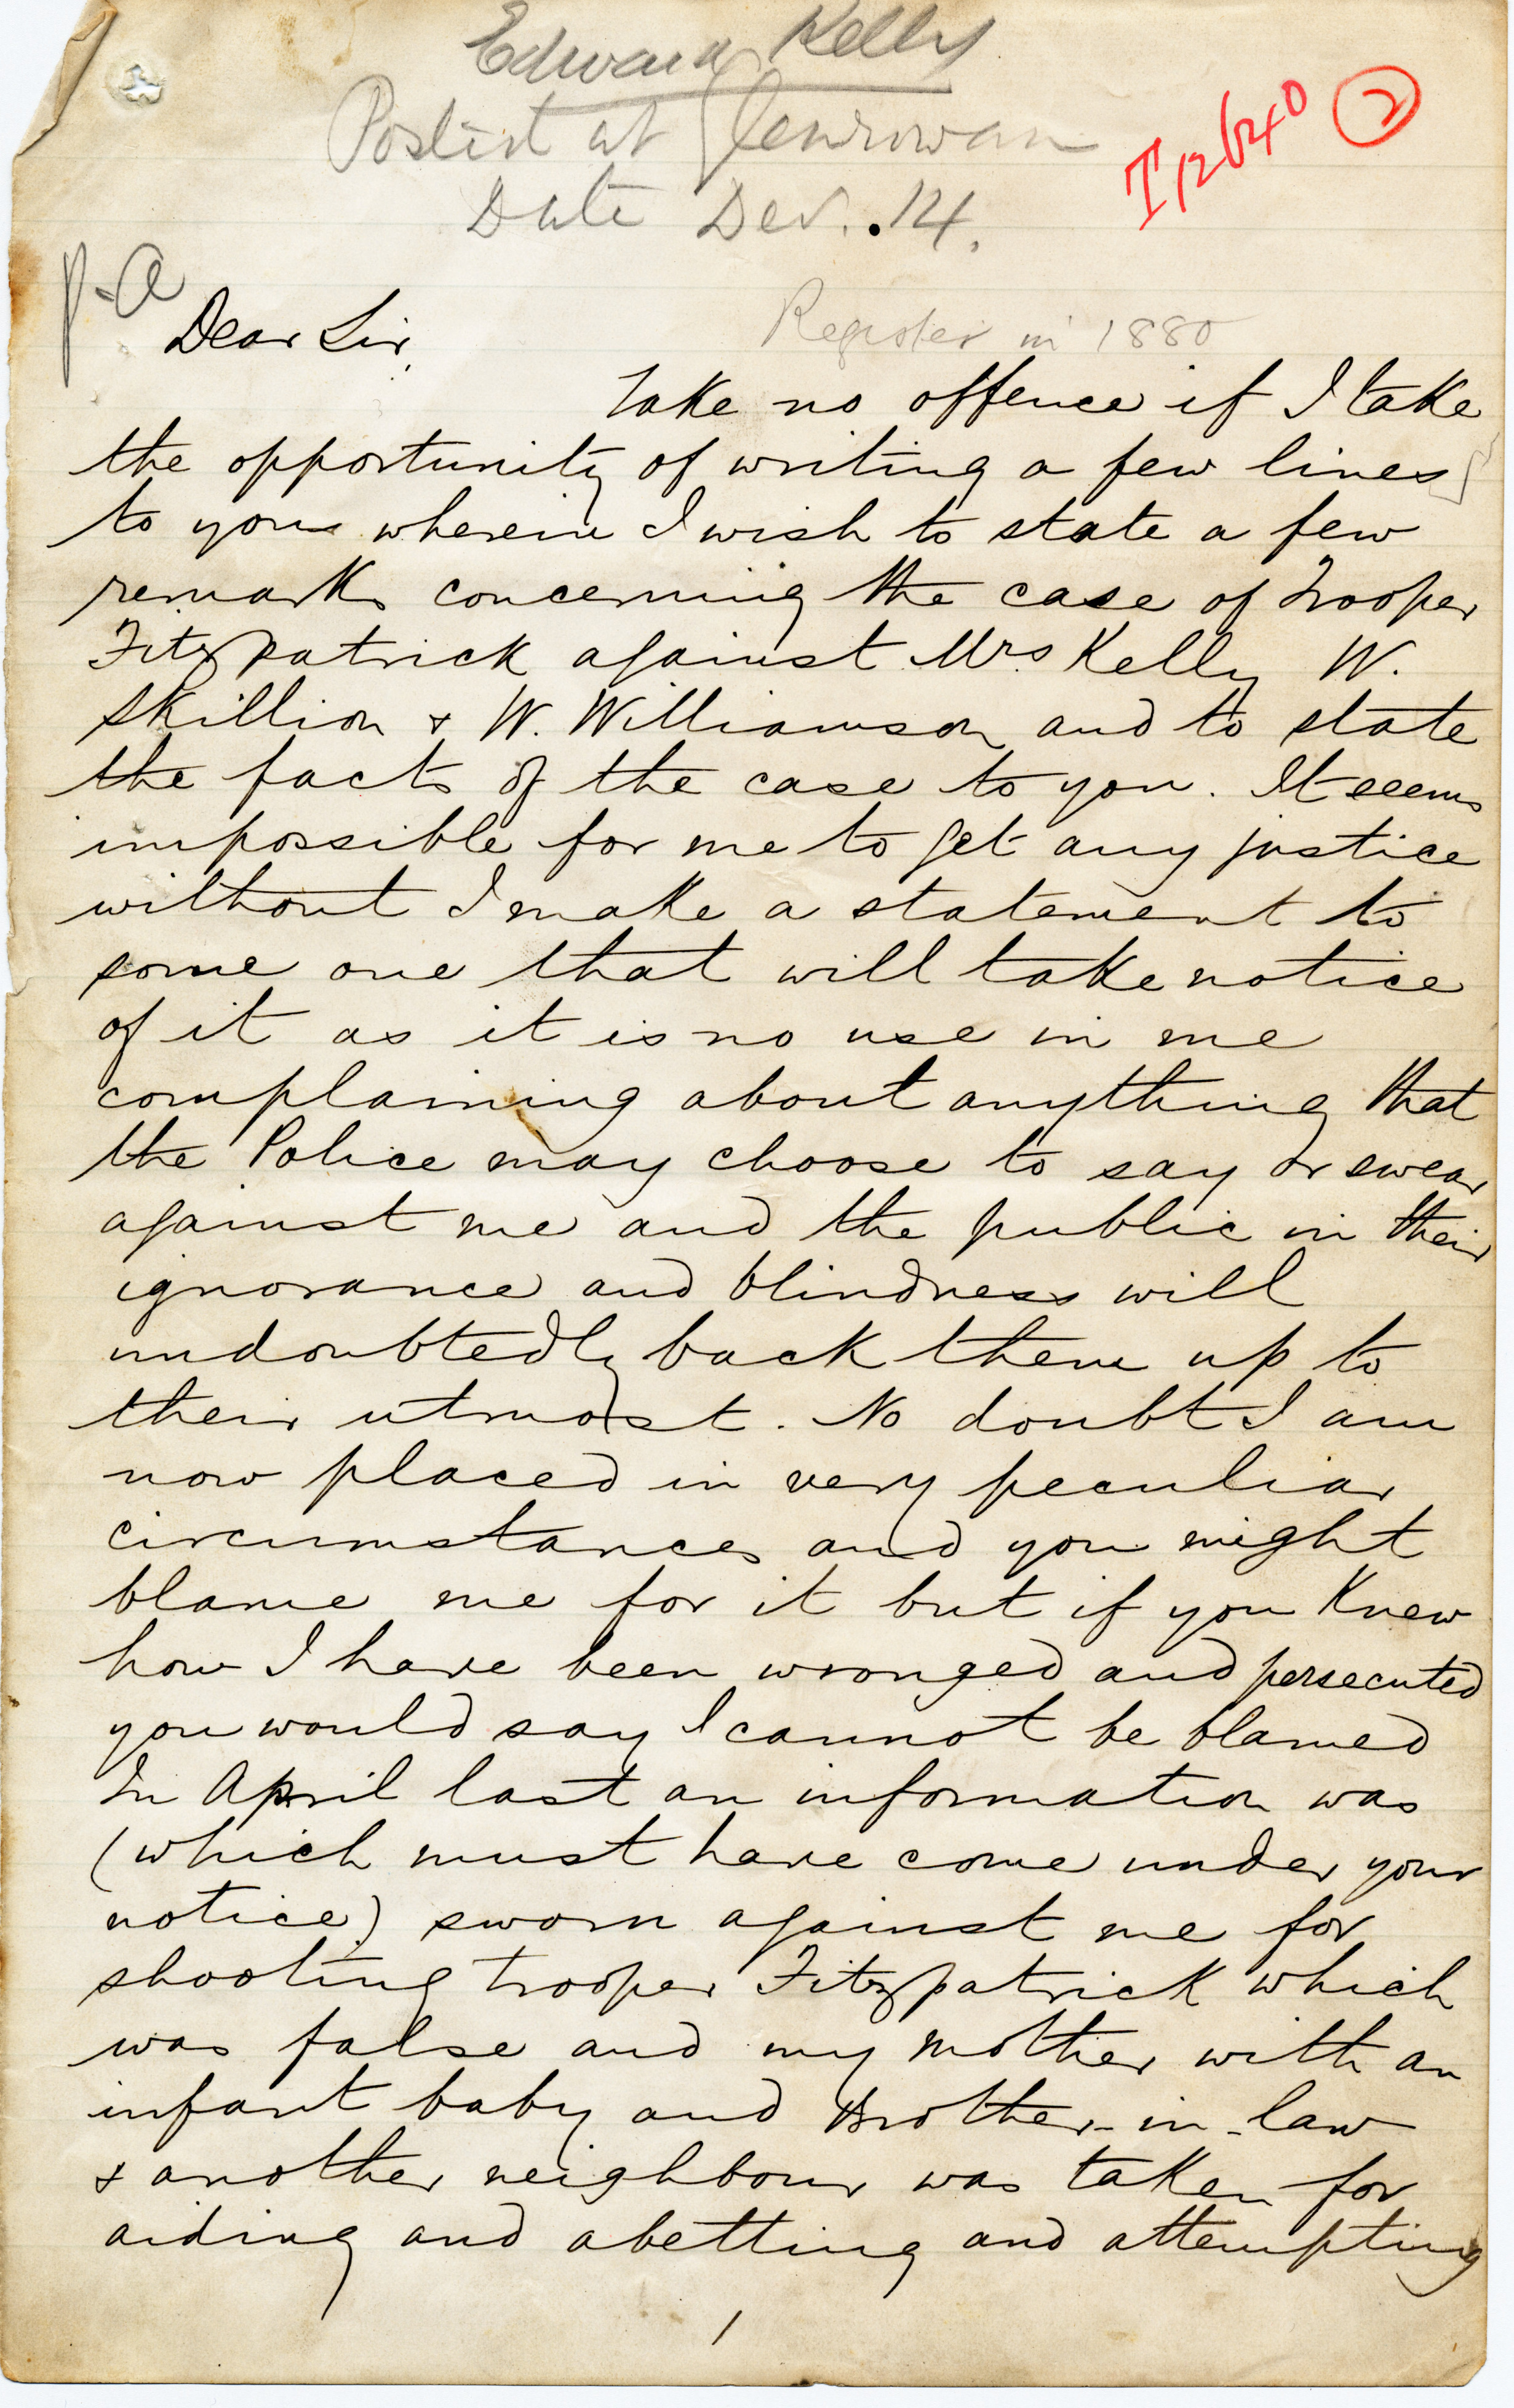 Edward Kelly
Posted at Glenrowan
Date Dec. 14.
I12640 2
p.A
Dear Sir,
Register in 1880
Take no offence if I take
the opportunity of writing a few lines
to you wherein I wish to state a few
remarks concerning the case of Trooper
Fitzpatrick against Mrs Kelly W.
Skillion & W. Williamson and to state
the facts of the case to you. It seems
impossible for me to get any justice
without I make a statement to
some one that will take notice
of it as it is no use in me
complaining about anything that
the Police may choose to say or swear
against me and the public in their
ignorance and blindness will
undoubtedly back them up to
their utmost. No doubt I am
now placed in very peculiar
circumstances and you might
blame me for it but if you Knew
how I have been wronged and persecuted
you would say I cannot be blamed
In April last an information was
(which must have come under your
notice) sworn against me for
shooting trooper Fitzpatrick which
was false and my mother with an
infant baby and Brother-in-law
& another neighbour was taken for
aiding and abetting and attempting
1